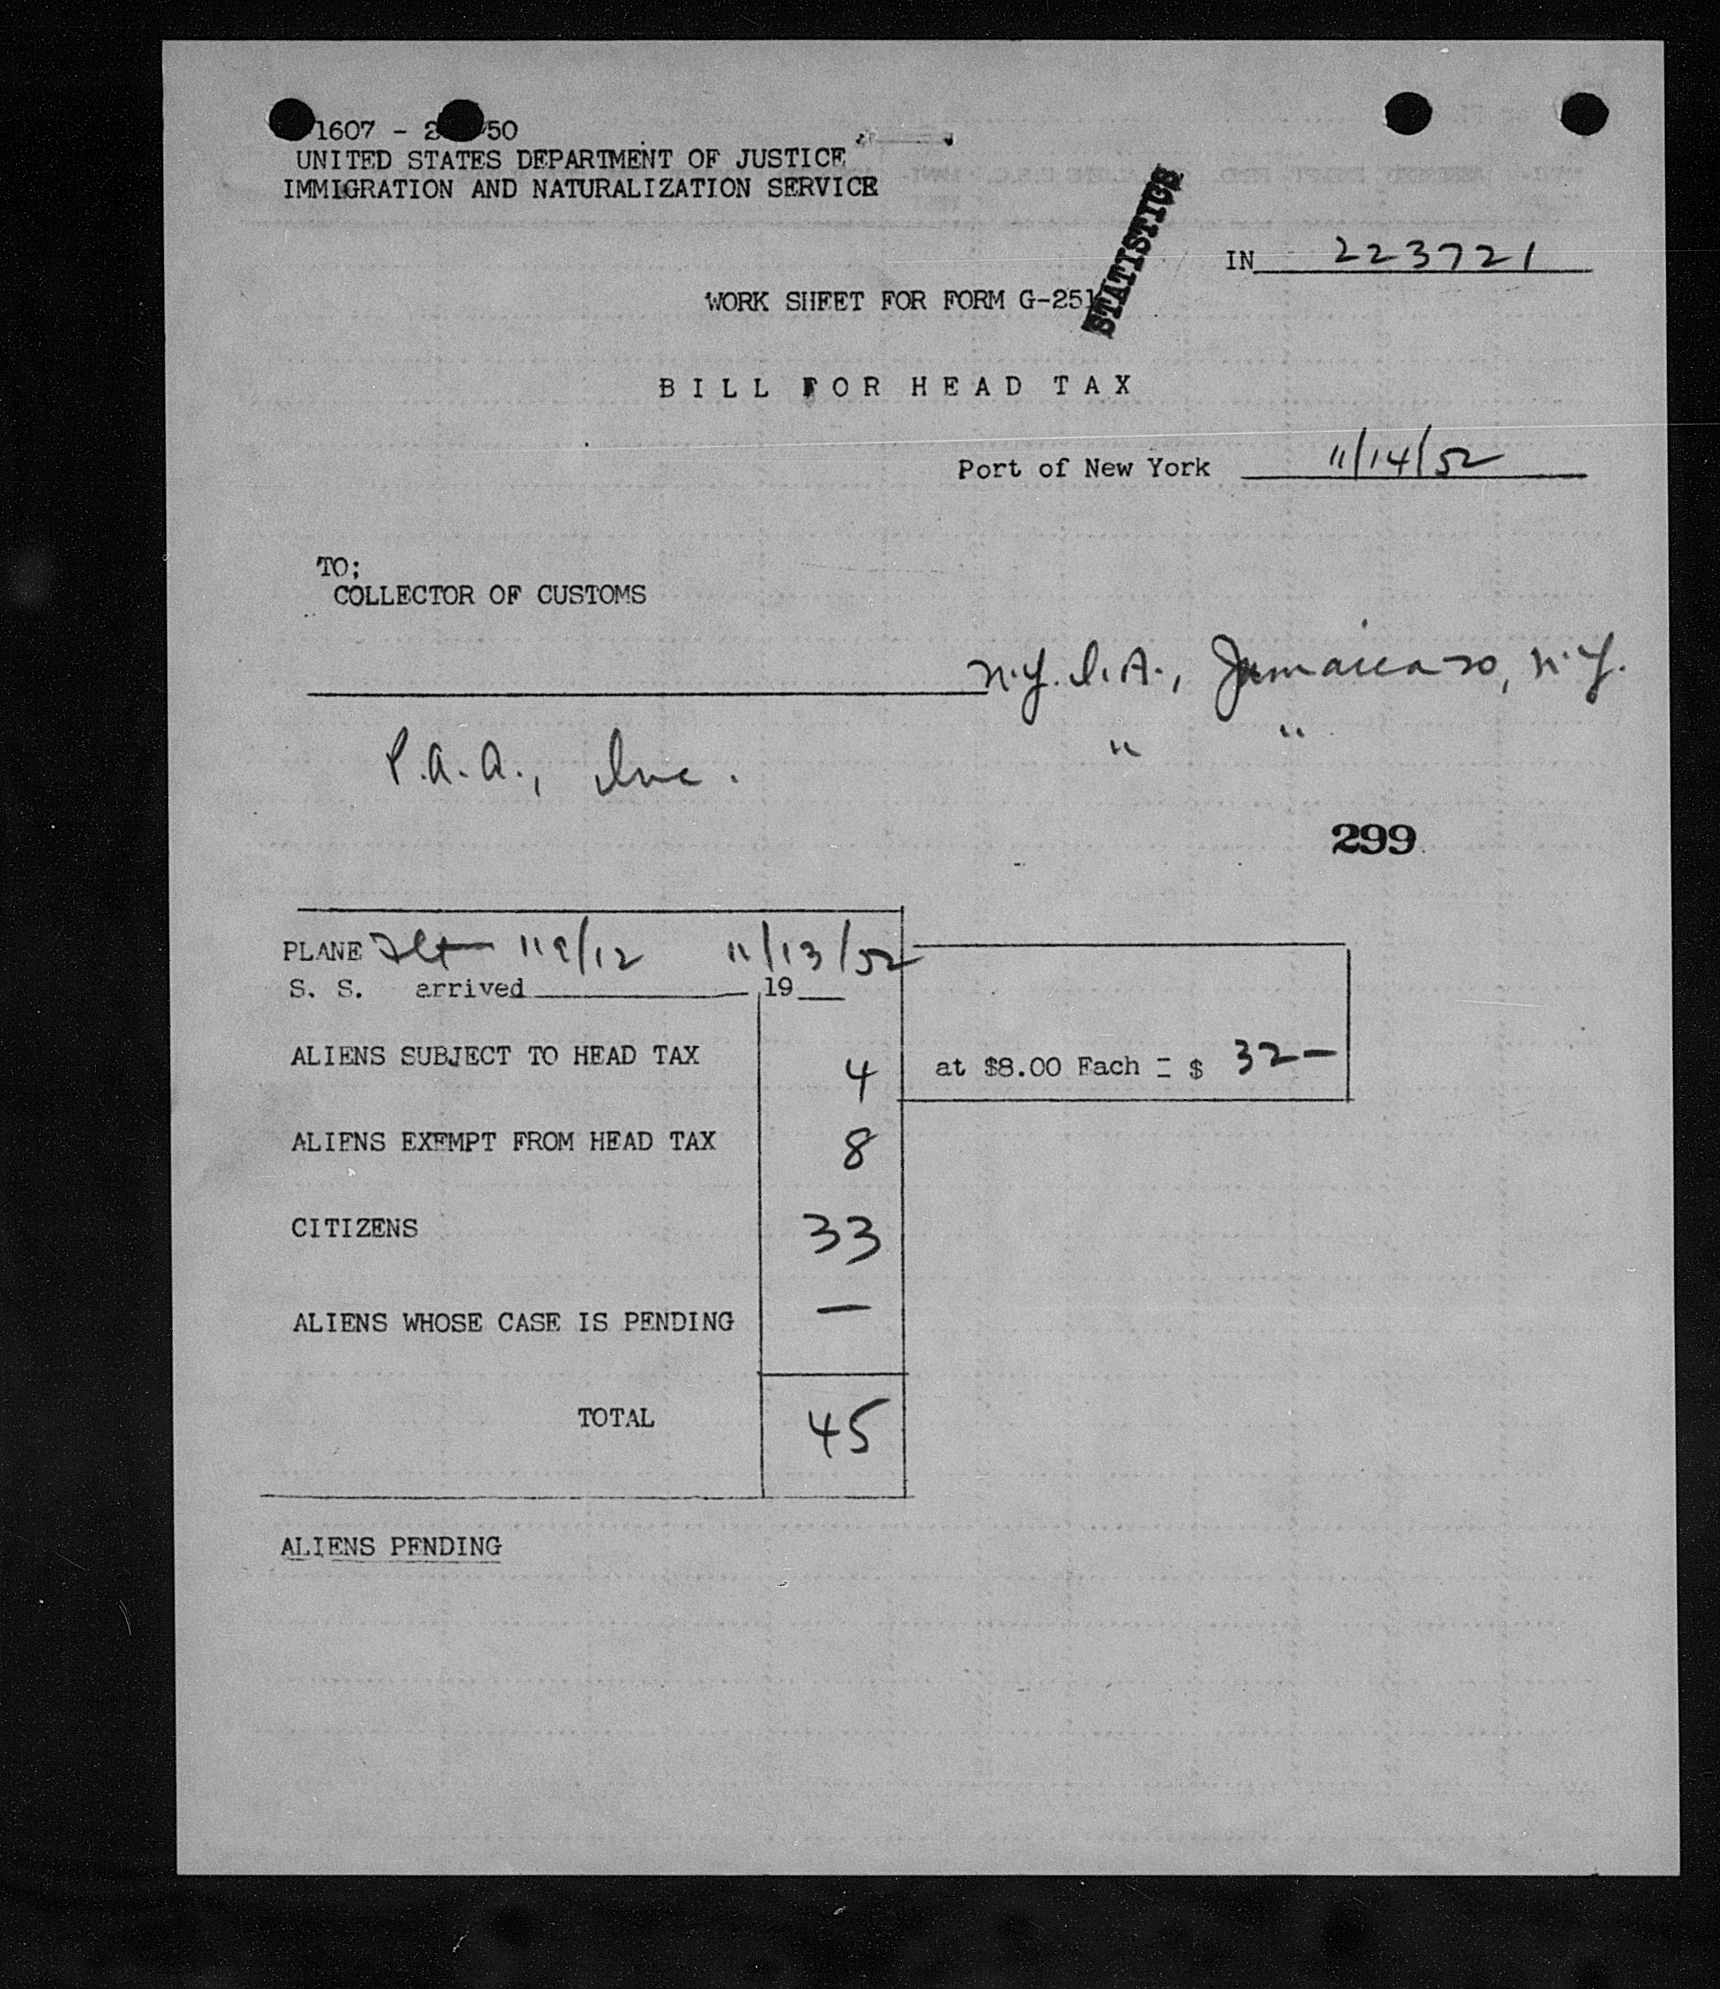 1607 - 2 50
UNITED STATES DEPARTMENT OF JUSTICE
IMMIGRATION AND NATURALIZATION SERVICE
STATISTICS
IN 223721
WORK SHEET FOR FORM G-251
BILL FOR HEAD TAX
Port of New York 11/14/52
TO;
COLLECTOR OF CUSTOMS
N.Y.I.A., Jamaica 30, N.Y.
P.A.A., Inc. " "
299
PLANE Flt 119/12 11/13/52
S. S. arrived 19
ALIENS SUBJECT TO HEAD TAX 4 at $8.00 Each = $ 32 —
ALIENS EXEMPT FROM HEAD TAX 8
CITIZENS 33
ALIENS WHOSE CASE IS PENDING —
TOTAL 45
ALIENS PENDING